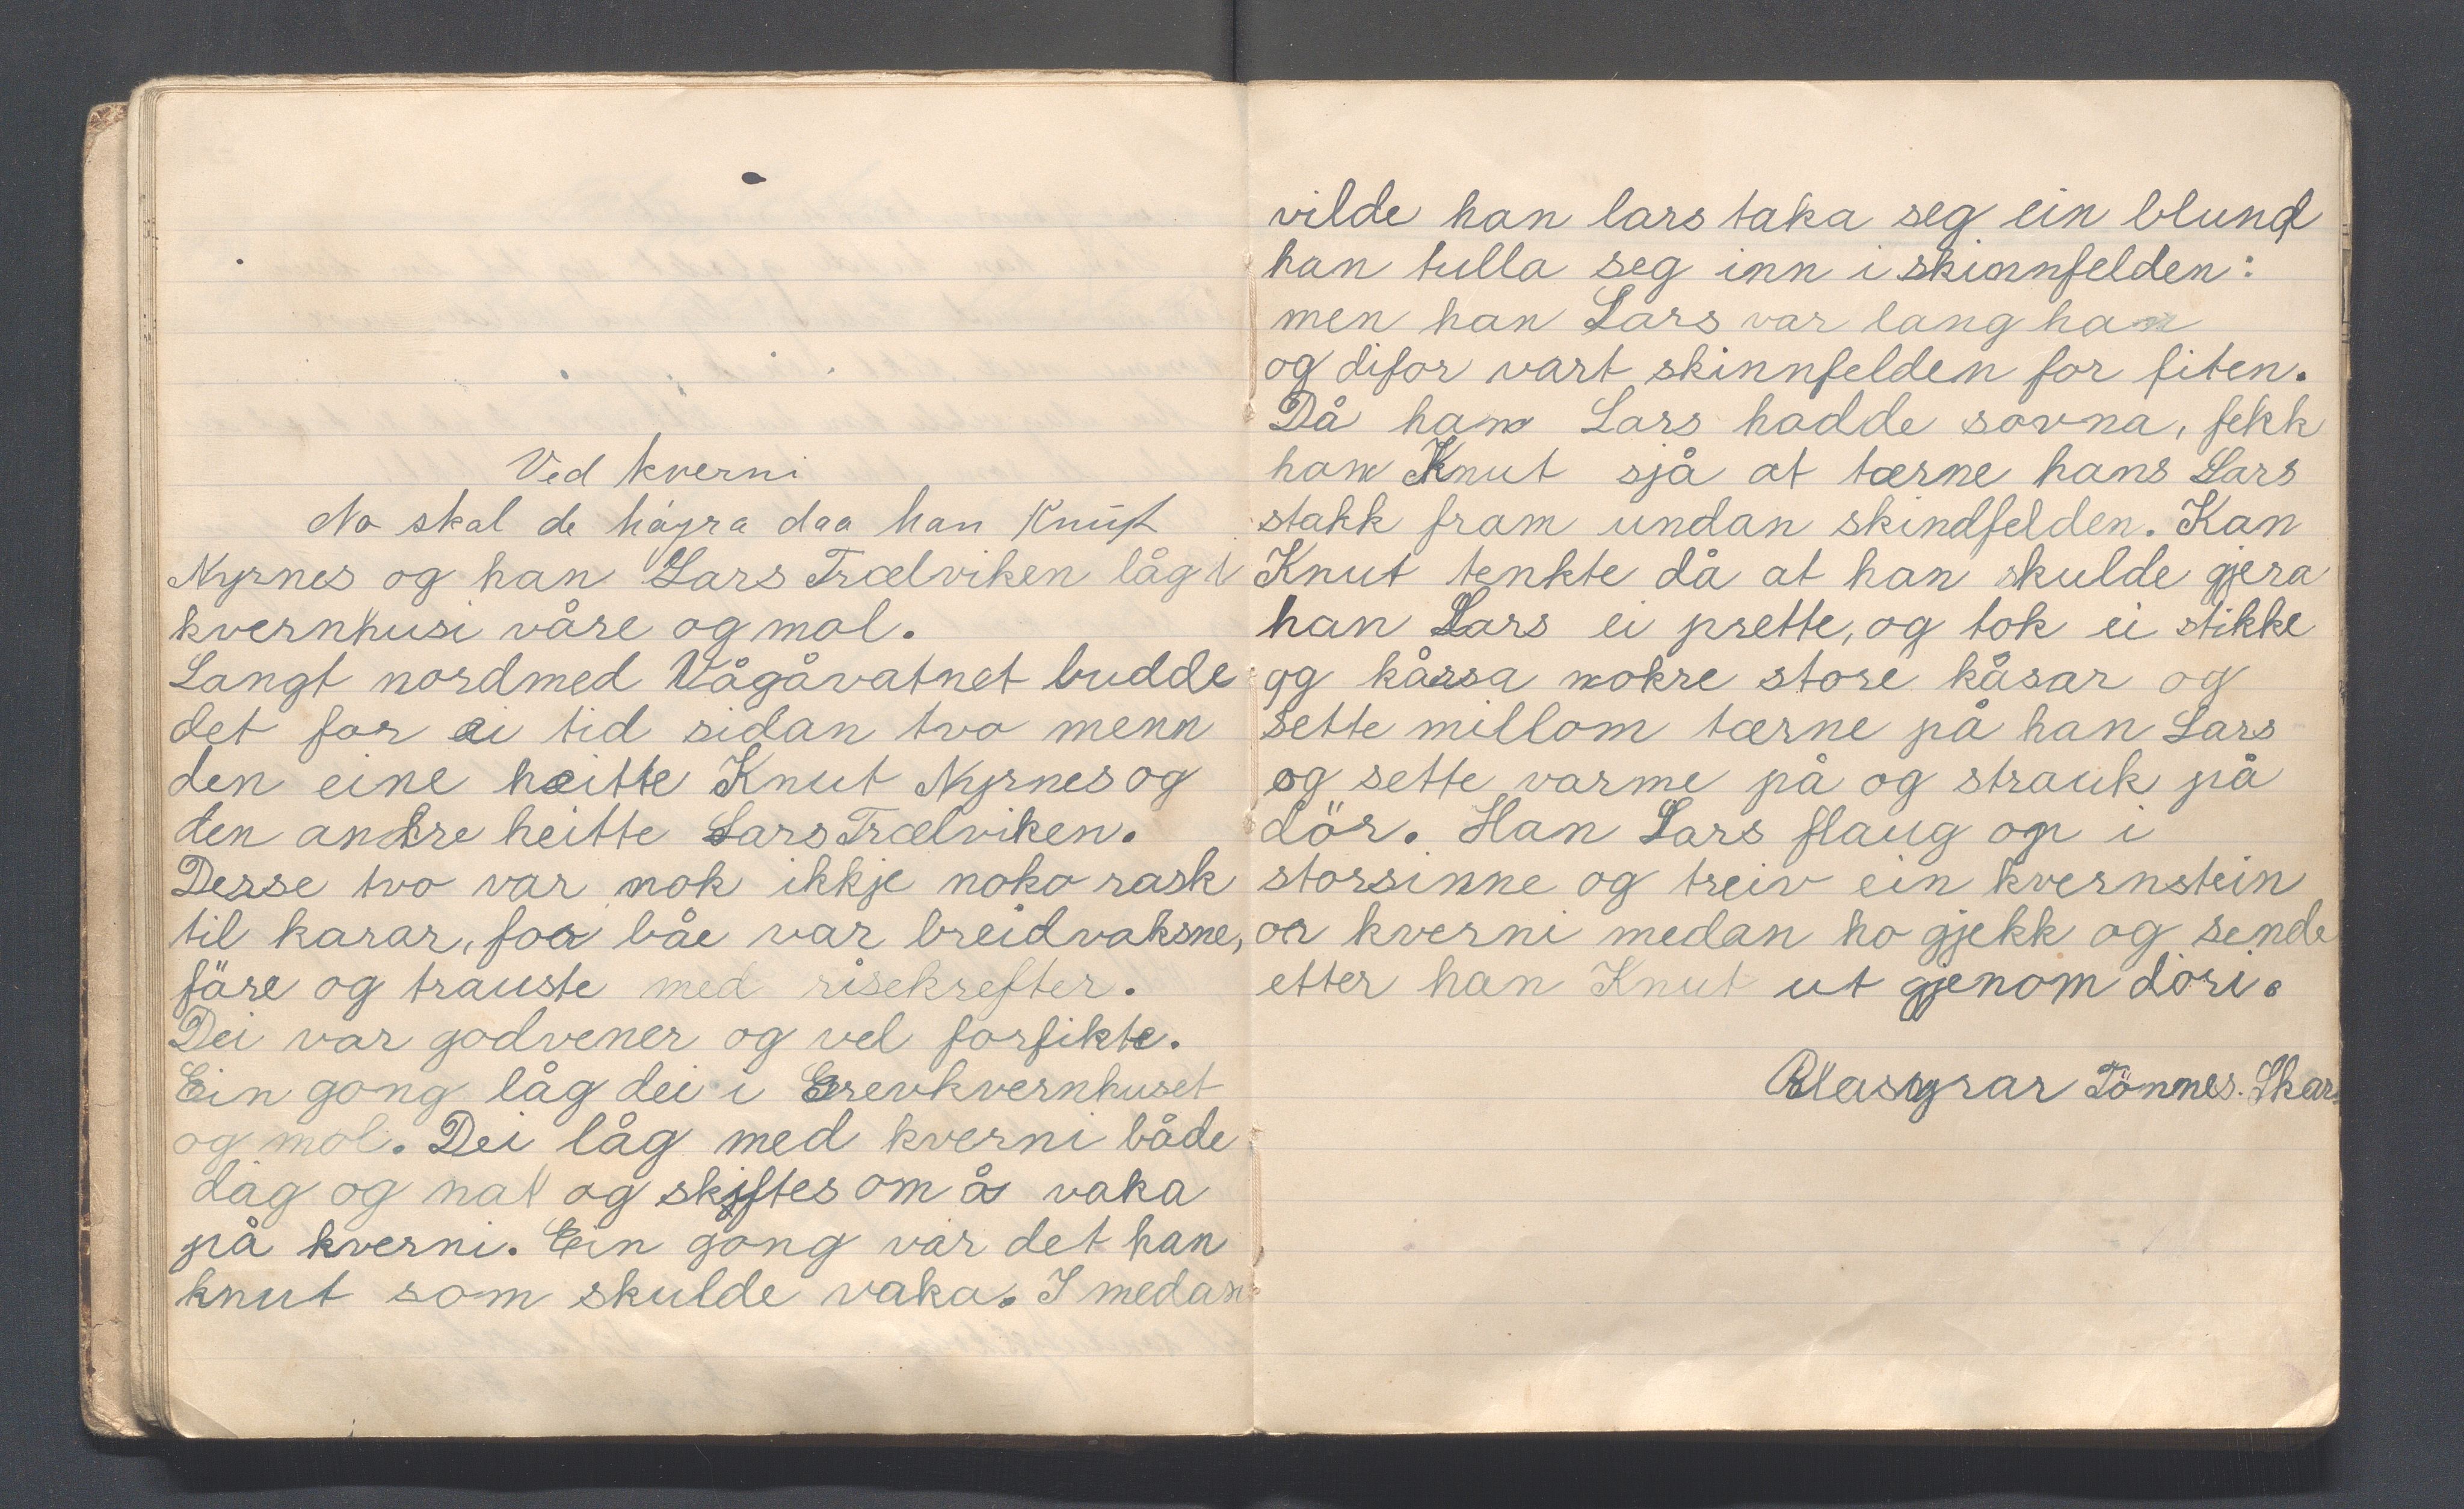 Ved kverni
No skal de høyra daa han Knut
Nyrnes og han Lars Trælviken låg i
kvernhusi våre og mol.
Langt nordmed Vågåvatnet budde
det for ei tid sidan tvo menn
den eine heitte Knut Nyrnes og
den andre heitte Lars Trælviken.
Desse tvo var nok ikkje noko rask
til karar, for båe var breidvaksne,
före og trauste med risekrefter.
Dei var godvener og vel forlikte.
Ein gong låg dei i Grevkvernhuset
og mol. Dei låg med kverni både
dag og nat og skiftes om å vaka
på kverni. Ein gong var det han
knut som skulde vaka. I medan
vilde han lars taka seg ein blund
han tulla seg inn i skinnfelden:
men han Lars var lang han
og difor vart skinnfelden for liten.
Då han Lars hadde sovna, fekk
han Knut sjå at tærne hans Lars
stakk fram undan skindfelden. Han
Knut tenkte då at han skulde gjera
han Lars ei prette, og tok ei stikke
og kårsa nokre store kåsar og
sette millom tærne på han Lars
og sette varme på og strauk på
dör. Han Lars flaug op i
storsinne og treiv ein kvernstein
or kverni medan ho gjekk og sende
etter han Knut ut gjenom döri.
Tönnes. Skar